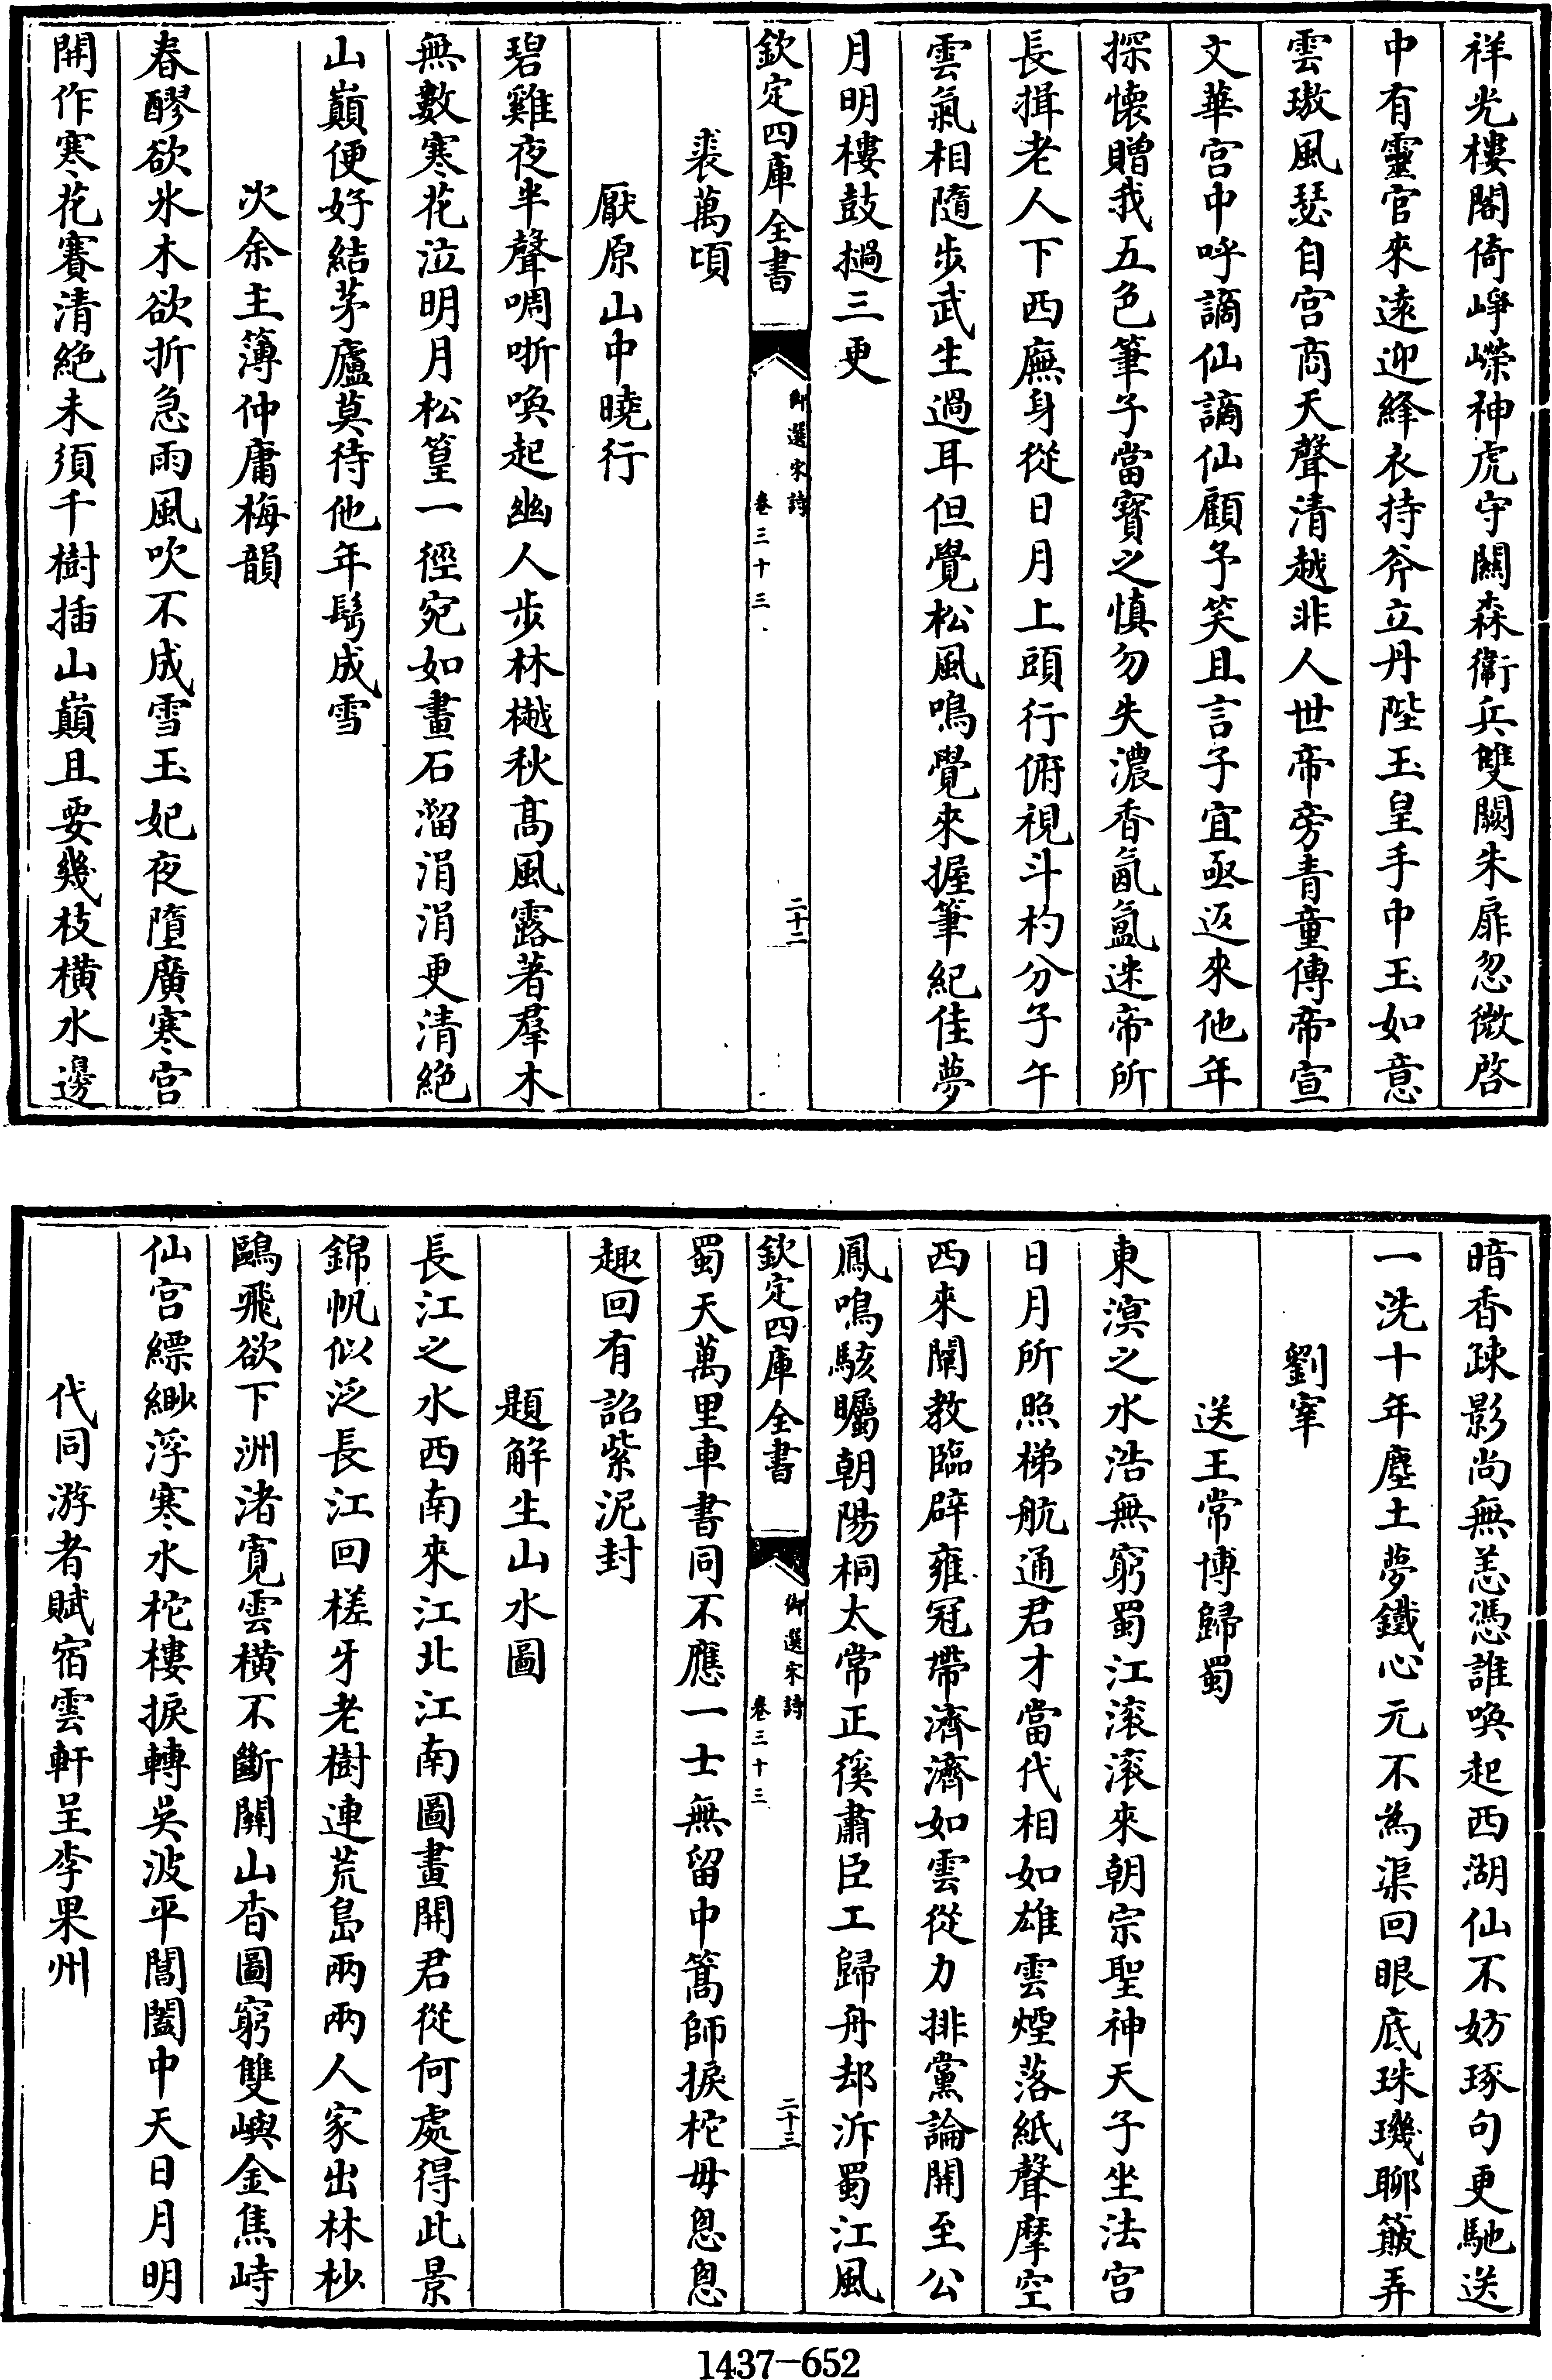 祥光樓閣倚崢嶸神虎守關森衛兵雙闕朱扉忽微啓
中有靈官來遠迎絳衣持斧立丹陛玉皇手中玉如意
雲璈風瑟自宫商天聲清越非人世帝旁青童傳帝宣
文華宫中呼謫仙謫仙顧予笑且言子宜亟返來他年
探懐贈我五色筆子當寳之慎勿失濃香氤氲迷帝所
長揖老人下西廡身從日月上頭行俯視斗杓分子午
雲氣相隨步武生過耳但覺松風鳴覺來握筆紀佳夢
月明樓鼓撾三更
欽定四庫全書
御選宋詩
卷三十三
二十二
裘萬頃
厭原山中曉行
碧雞夜半聲啁哳喚起幽人步林樾秋髙風露著羣木
無數寒花泣明月松篁一徑宛如畫石溜涓涓更清絶
山巔便好結茅廬莫待他年髩成雪
次余主簿仲庸梅韻
春醪欲氷木欲折急雨風吹不成雪玉妃夜墮廣寒宫
開作寒花賽清絶未須千樹插山巔且要幾枝横水邊
暗香疎影尚無恙憑誰喚起西湖仙不妨琢句更馳送
一洗十年塵土夢鐵心元不為渠回眼底珠璣聊簸弄
劉宰
送王常博歸蜀
東溟之水浩無窮蜀江滚滚來朝宗聖神天子坐法宫
日月所照梯航通君才當代相如雄雲煙落紙聲摩空
西來闡教臨辟雍冠帶濟濟如雲從力排黨論開至公
鳳鳴駭矚朝陽桐太常正徯肅臣工歸舟却泝蜀江風
欽定四庫全書
御選宋詩
卷三十三
二十三
蜀天萬里車書同不應一士無留中篙師捩柁毋恖恖
趣回有詔紫泥封
題解生山水圖
長江之水西南來江北江南圖畫開君從何處得此景
錦帆似泛長江回槎牙老樹連荒島兩兩人家出林杪
鷗飛欲下洲渚寛雲横不斷關山杳圖窮雙嶼金焦峙
仙宫縹緲浮寒水柁樓捩轉吳波平閶闔中天日月明
代同游者賦宿雲軒呈李果州
1437-652